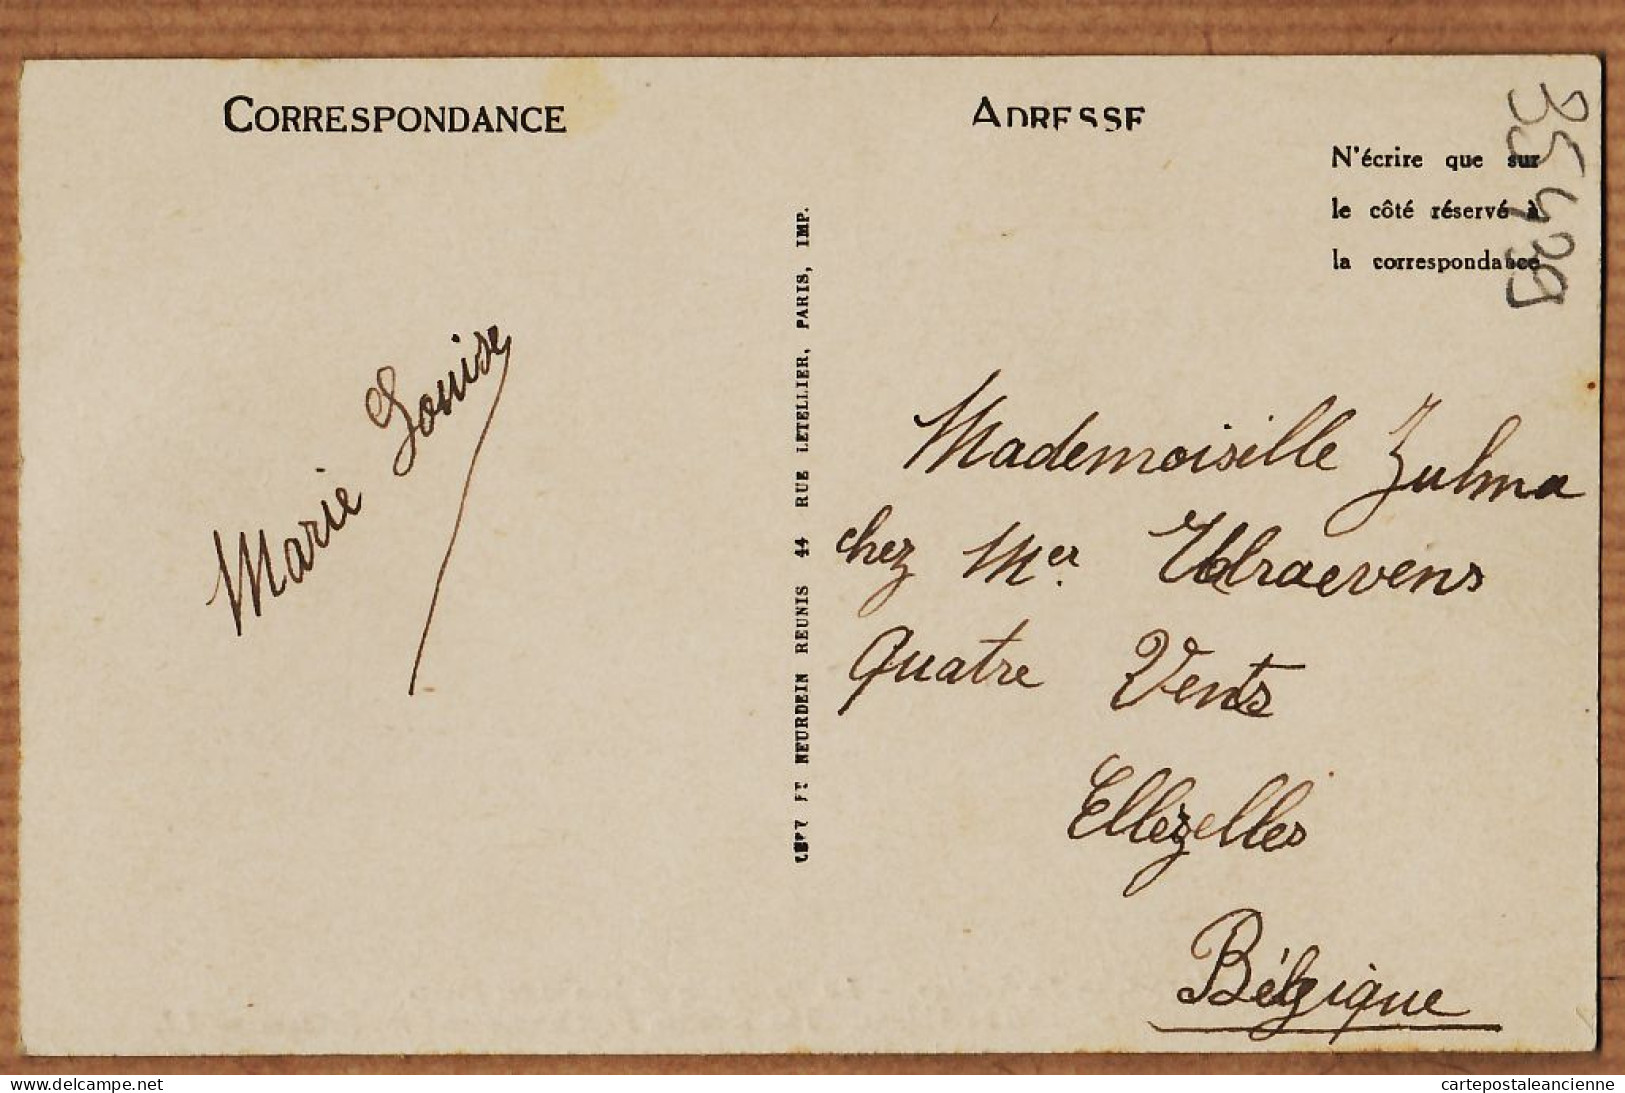 CORRESPONDANCE
Marie Louise
LEVY ET NEURDEIN REUNIS 44 RUE LETELLIER, PARIS, IMP.
ADRESSE
N'écrire que sur
le côté réservé à
la correspondance
Mademoiselle Zulma
chez Mer
Quatre Vents
Ellezelles
Bélgique
delcampe.net
cartepostaleancienne